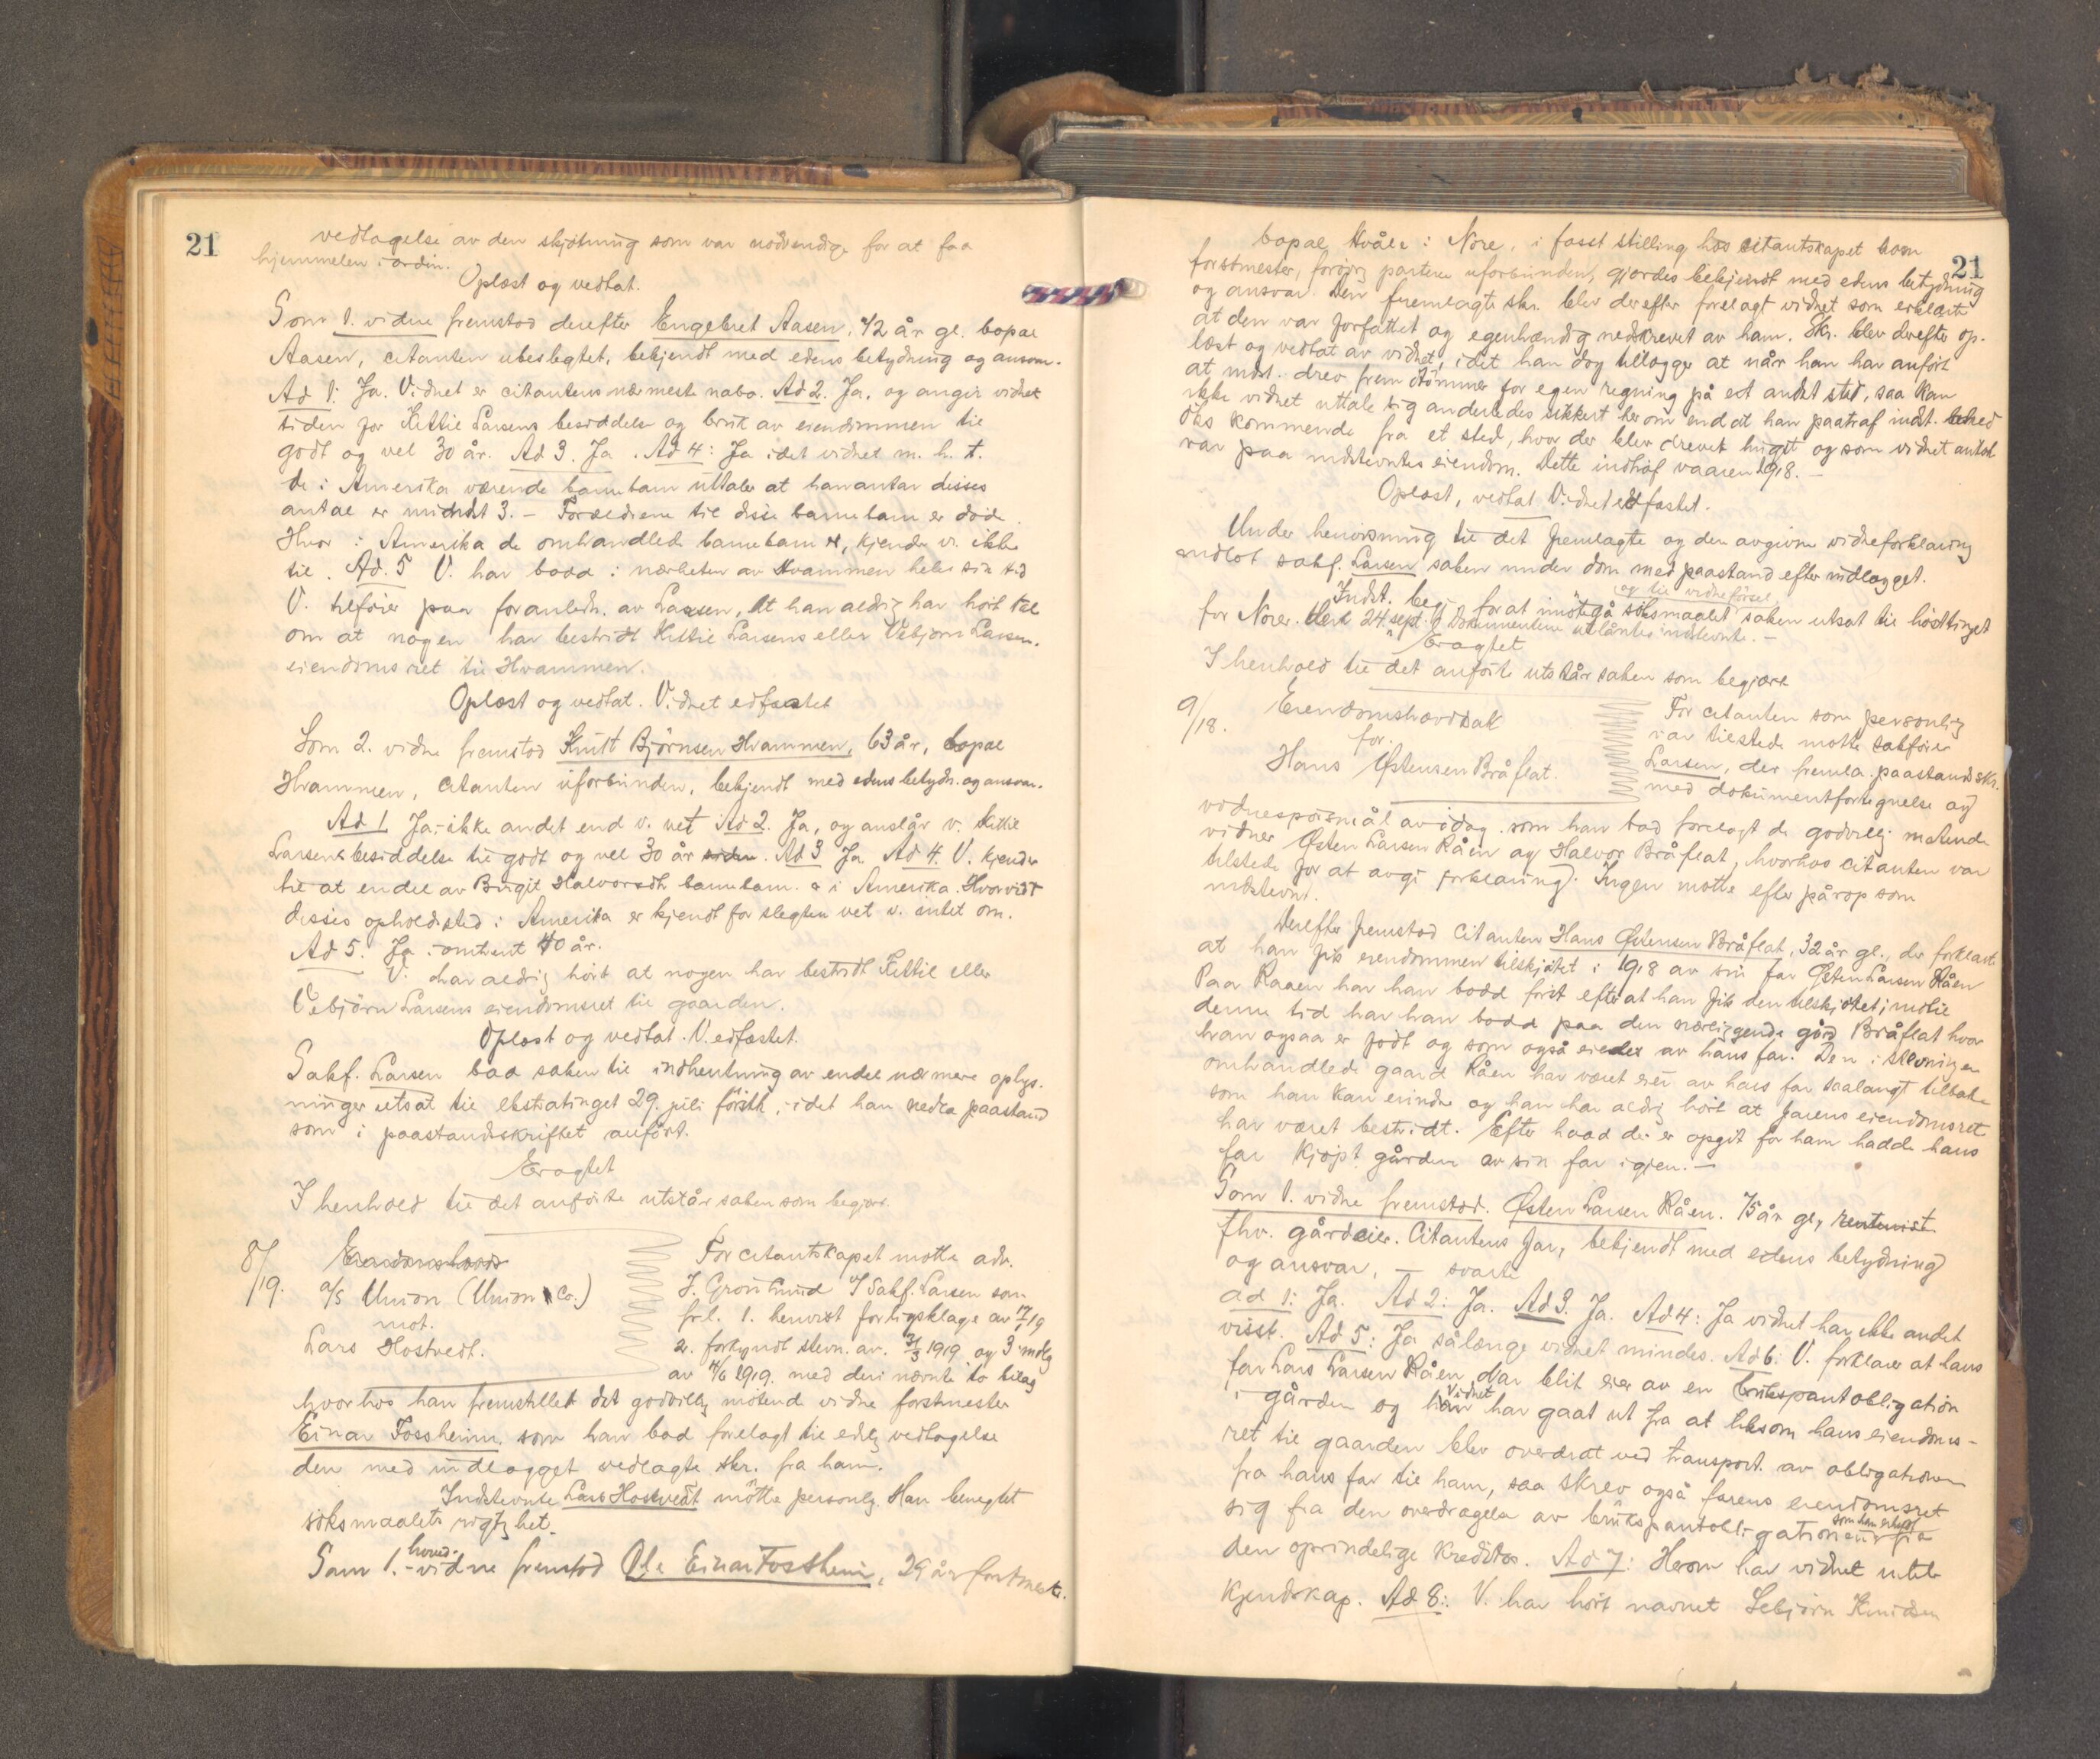 21
vedtagelse av den skjøtning som var nødvendige for at faa
hjemmelen i ordin.
Oplæst og vedtat.
Som 1. vidne fremstod derefter Engebret Aasen, 42 år gl. bopæl
Aasen, citanten ubeslegtet, bekjendt med edens betydning og ansvar.
Ad 1: Ja. Vidnet er citantens nærmeste nabo. Ad 2. Ja, og angir vidnet
tiden for Kittil Larsens besiddelse og bruk av eiendommen til
godt og vel 30 år. Ad 3. Ja. Ad 4: Ja idet vidnet m. h. t.
de i Amerika værende barnebarn uttaler at han antar disses
antal er mindst 3. – Forældrene til disse barnebarn er døde.
Hvor i Amerika de omhandlede barnebarn er, kjender v. ikke
til. Ad. 5 V. har bodd i nærheten av Hvammen hele sin tid
V. tilføier paa foranledn. av Larsen, at han aldrig har hört tale
om at nogen har bestridt Kittil Larsens eller Vebjørn Larsens
eiendomsret til Hvammen.
Oplæst og vedtat. Vidnet edfæstet
Som 2. vidne fremstod Knut Björnsen Hvammen, 63 år, bopæl
Hvammen, citanten uforbunden, bekjendt med edens betydn. og ansvar.
Ad 1 Ja, ikke andet end v. vet Ad 2. Ja, og anslår v. Kittil
Larsens besiddelse til godt og vel 30 år siden. Ad 3 Ja Ad 4. V. kjender
til at endel av Birgit Halvorsdtr barnebarn. er i Amerika. Hvorvidt
disses opholdssted i Amerika er kjendt for slegten vet v. intet om.
Ad 5. Ja i omtrent 40 år.
V. har aldrig hört at nogen har bestridt Kittil eller
Vebjörn Larsens eiendomsret til gaarden.
Oplæst og vedtat. V. edfæstet.
Sakf. Larsen bad saken til indhentning av endel nærmere oplys-
ninger utsat til ekstratinget 29. juli förstk, idet han nedla paastand
som i paastandsskriftet anført.
Eragtet
I henhold til det anførte utstår saken som begjært.
8/19.
Eiendomshævd
a/s Union (Union Co.)
mot.
Lars Hostvedt.
For citantskapet møtte adv.
J. Grönlund v/ Sakf. Larsen som
frl. 1. henvist forligsklage av 17/1 19
2. forkyndt stevn. av. 31/3 1919 og 3 indlæg
av 4/6 1919. med deri nævnte to bilag
hvorhos han fremstillet det godvillig møtende vidne forstmester
Einar Fossheim, som han bad forelagt til edelig vedtagelse
den med indlægget vedlagte skr. fra ham.
Indstevnte Lars Hostvedt mötte personlig. Han benegtet
söksmaalets rigtighet.
Som 1. hoved-vidne fremstod Ole Einar Fossheim, 29 år forstmest.
21
bopæl Kvåle i Nore, i fasst stilling hos citantskapet som
forstmester, forøvrig partene uforbunden, gjordes bekjendt med edens betydning
og ansvar. Den fremlagte skr. blev derefter forelagt vidnet som erklærte
at den var forfattet og egenhændig nedskrevet av ham. Skr. blev derefter op-
læst og vedtat av vidnet, idet han dog tillægger at når han har anført
at indst. drev frem tömmer for egen regning på et andet sted, saa kan
ikke vidnet uttale sig anderledes sikkert herom end at han paatraf indst. med
öks kommende fra et sted, hvor der blev drevet hugst og som vidnet antok
var paa indstevntes eiendom. Dette indtraf vaaren 1918. –
Oplæst, vedtat Vidnet edfæstet.
Under henvisning til det fremlagte og den avgivne vidneforklaring
indlot sakf. Larsen saken under dom med paastand efter indlægget.
og til vidneførsel
Indst. begj. for at imötegå söksmaalet saken utsat til hösttinget
for Nore. den 24. sept. Dokumentene utlåntes indstevnte. –
Eragtet
I henhold til det anførte utstår saken som begjært
9/18.
Eiendomshævdsak
for.
Hans Østensen Bråflat.
For citanten som personlig
var tilstede møtte sakfører
Larsen, der fremla paastandsskr.
med dokumentfortegnelse og
vidnespörsmål av idag. som han bad forelagt de godvillig møtende
vidner Østen Larsen Råen og Halvor Bråflat, hvorhos citanten var
tilstede for at avgi forklaring. Ingen møtte efter pårop som
indstevnt.
Derefter fremstod Citanten Hans Østensen Bråflat, 32 år gl., der forklarte
at han fik eiendommen tilskjøtet i 1918 av sin far Østen Larsen Råen
Paa Raaen har han bodd först efter at han fik den tilskjøtet; indtil
denne tid har han bodd paa den nærliggende gård Bråflat hvor
han ogsaa er födt og som også eiedes av hans far. Den i stevningen
omhandlede gaard Råen har været eiet av hans far saalangt tilbake
som han kan erindre og han har aldrig hört at farens eiendomsret
har været bestridt. Efter hvad der er opgit for ham hadde hans
far kjøpt gården av sin far igjen. –
Som 1. vidne fremstod. Østen Larsen Råen. 75 år gl, rentenist.
fhv. gårdeier. Citantens far, bekjendt med edens betydning
og ansvar, – svarte
ad 1: Ja. Ad 2: Ja. Ad 3. Ja. Ad 4: Ja vidnet har ikke andet
visst. Ad 5: Ja sålænge vidnet mindes. Ad 6: V. forklarer at hans
far Lars Larsen Råen har blit eier av en brukspantobligation
i gården og vidnet har gaat ut fra at liksom hans eiendoms-
ret til gaarden blev overdrat ved transport av obligationen
fra hans far til ham, saa skrev også farens eiendomsret
sig fra den overdragelse av brukspantobligationen som han erhvervet fra
den oprindelige kreditor. Ad 7: Herom har vidnet intet
kjendskap. Ad 8: V. har hört navnet Sebjörn Knudsen